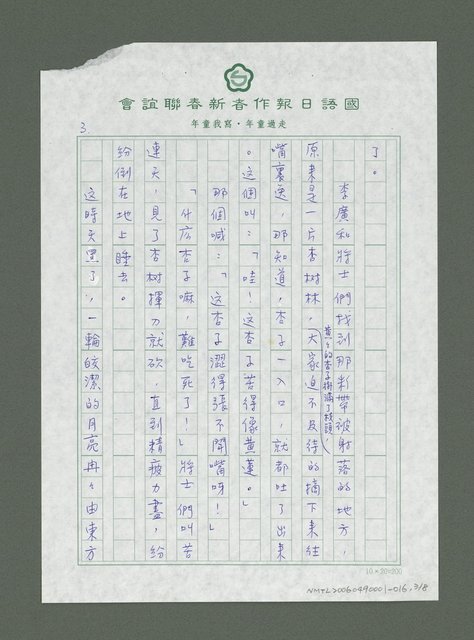 國語日報作者新春聯誼會
走過童年・寫我童年
3.
了。
李廣和將士們找到那彩帶被射落的地方，
原來是一片杏樹林，大家迫不及待的摘下來往
黃黃的杏子掛滿了枝頭，
嘴裏送，那知道，杏子一入口，就都吐了出來
。這個叫：「哇！這杏子苦得像黃蓮。」
那個喊：「這杏子澀得張不開嘴呀！」
「什麼杏子嘛，難吃死了！」將士們叫苦
連天，見了杏樹揮刀就砍，直到精疲力盡，紛
紛倒在地上睡去。
這時天黑了，一輪皎潔的月亮冉々由東方
10×20=200
NMTL20060490001-016.3/8